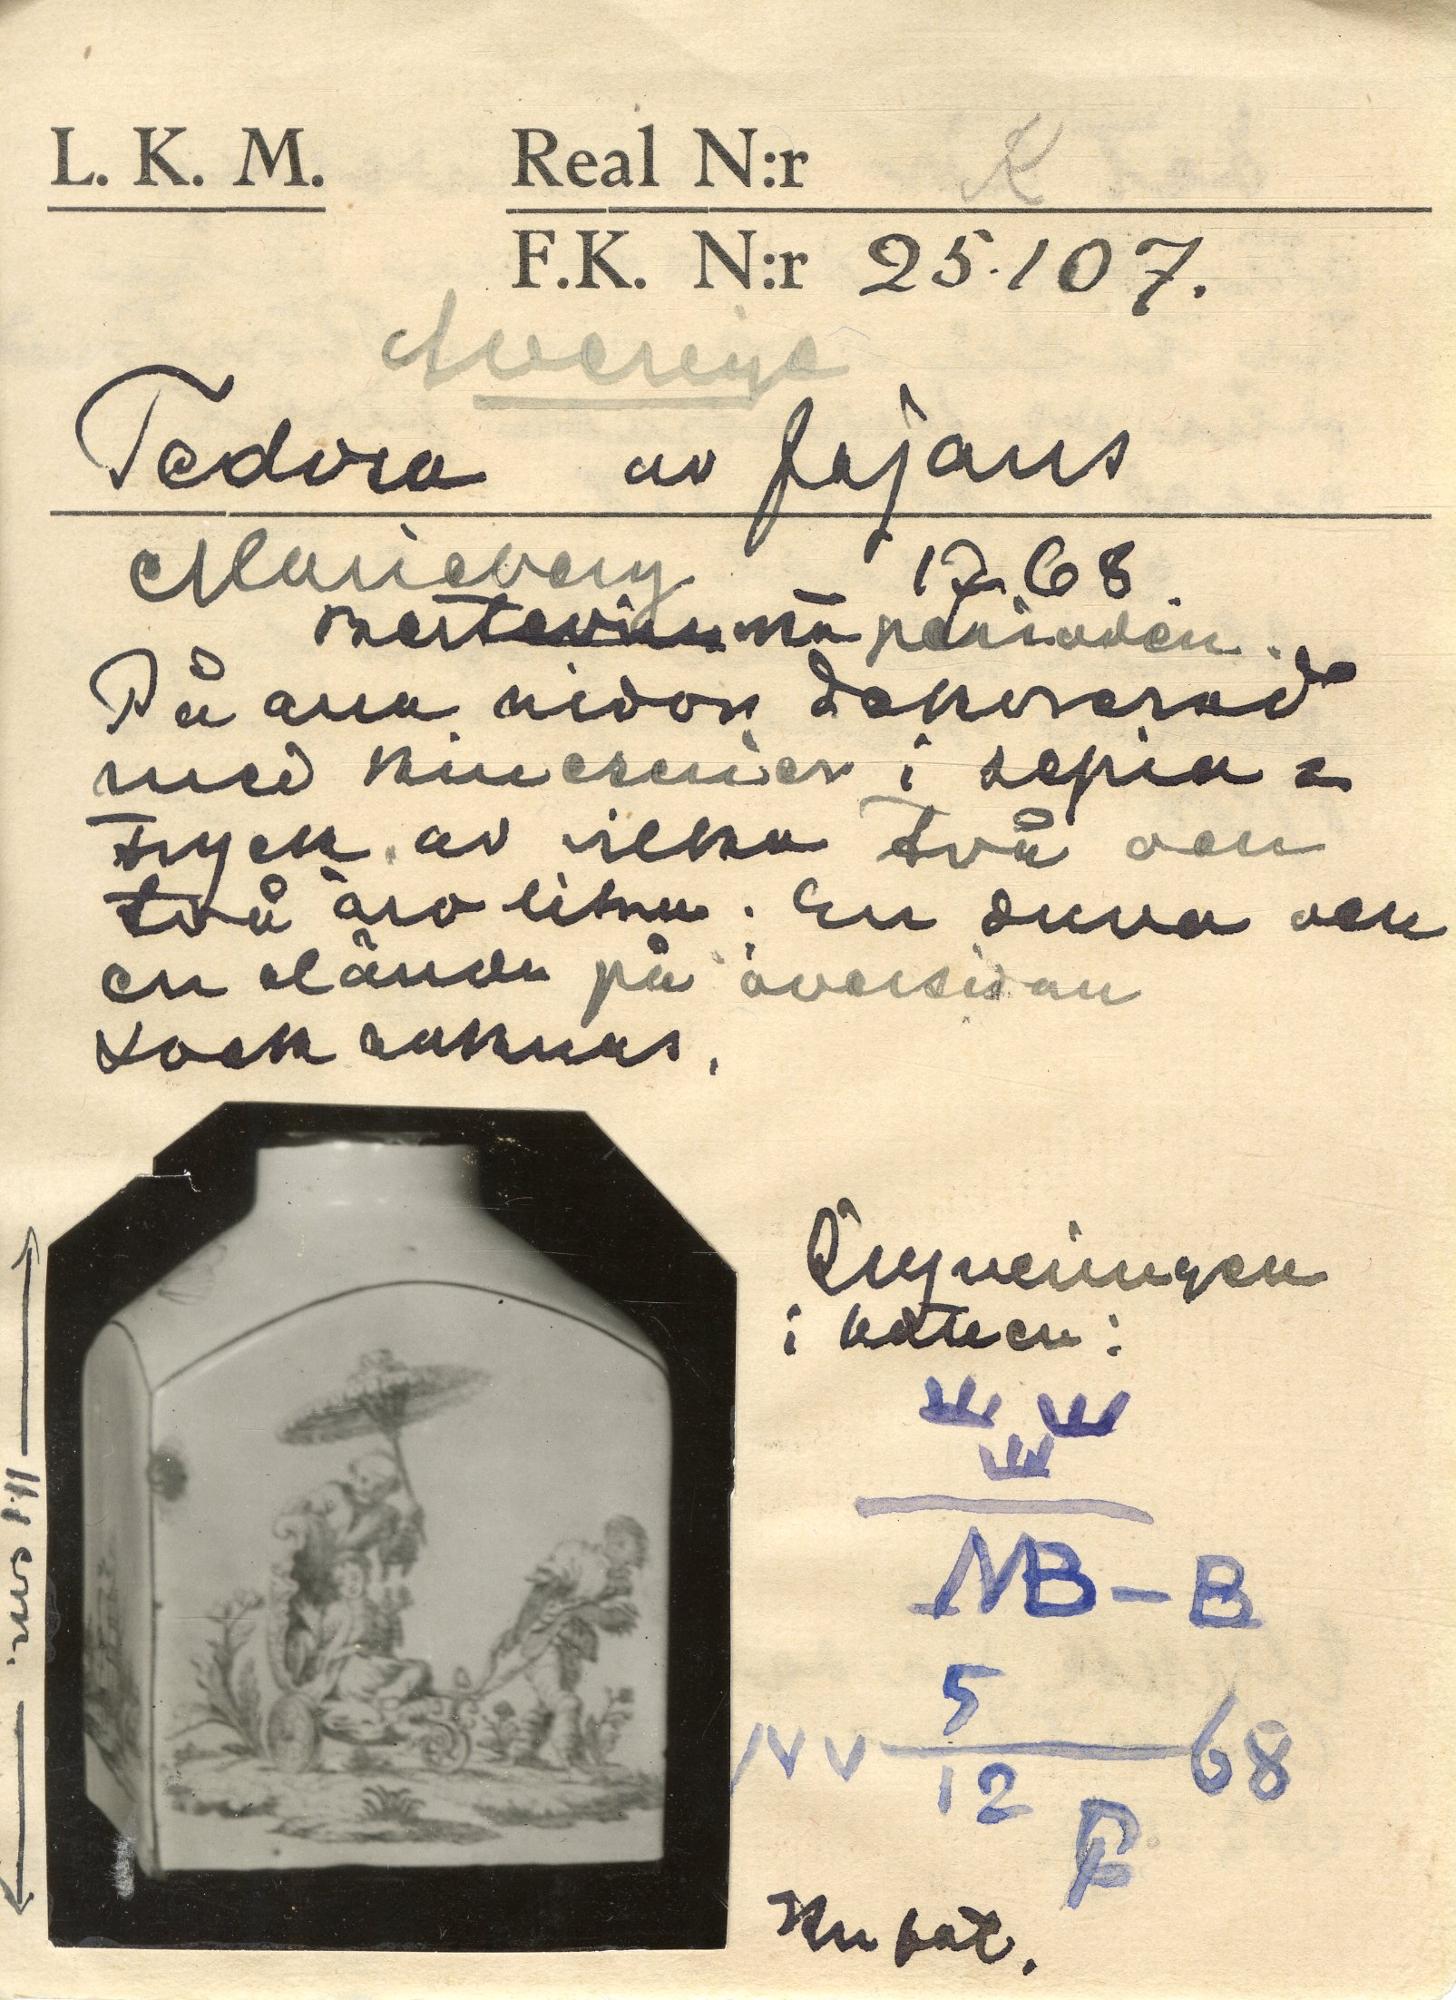 L. K. M.
Real N:r K
F.K. N:r 25.107.
Sverige
Tedosa av fajans
Marieberg 1768.
Bertevinska perioden.
På alla sidor dekorerad
med kineserier i sepia=
tryck, av vilka två och
två äro lika. En duva och
en slända på översidan
Lock saknas.
11.1 cm.
Signeringen
i botten:
MB-B
5
12
68
Nubbat.